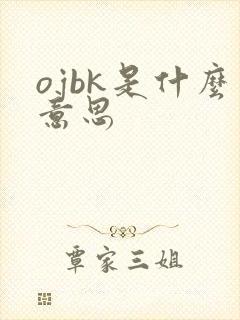 ojbk是什麼
意思
覃家三姐